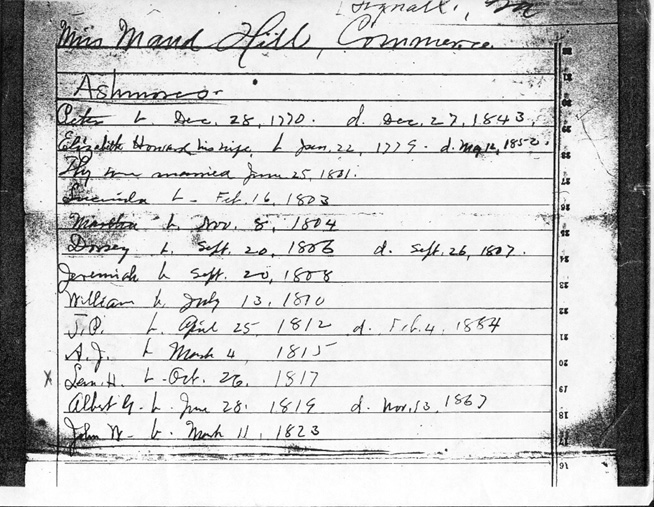 Miss Maud Hill, Commerce
Ashmores.
Peter b. Dec. 28, 1770. d. Dec. 27, 1843.
Elizabeth Howard his wife, b Jan. 22, 1779. d. May 12, 1852.
They were married June 25, 1801.
Lucinda b - Feb. 16, 1803
b. Nov. 8, 1804
Dorsey b. Sept. 20, 1806 d. Sept. 26, 1807.
Jeremiah b Sept. 20, 1808
William b. July 13, 1810
J. P. b. April 25, 1812 d. Feb. 4, 1884
A. J. b March 4, 1815
x H. b - Oct. 26, 1817
Albert G. b. June 28, 1819 d. Nov. 13, 1867
John W - b. March 11, 1823